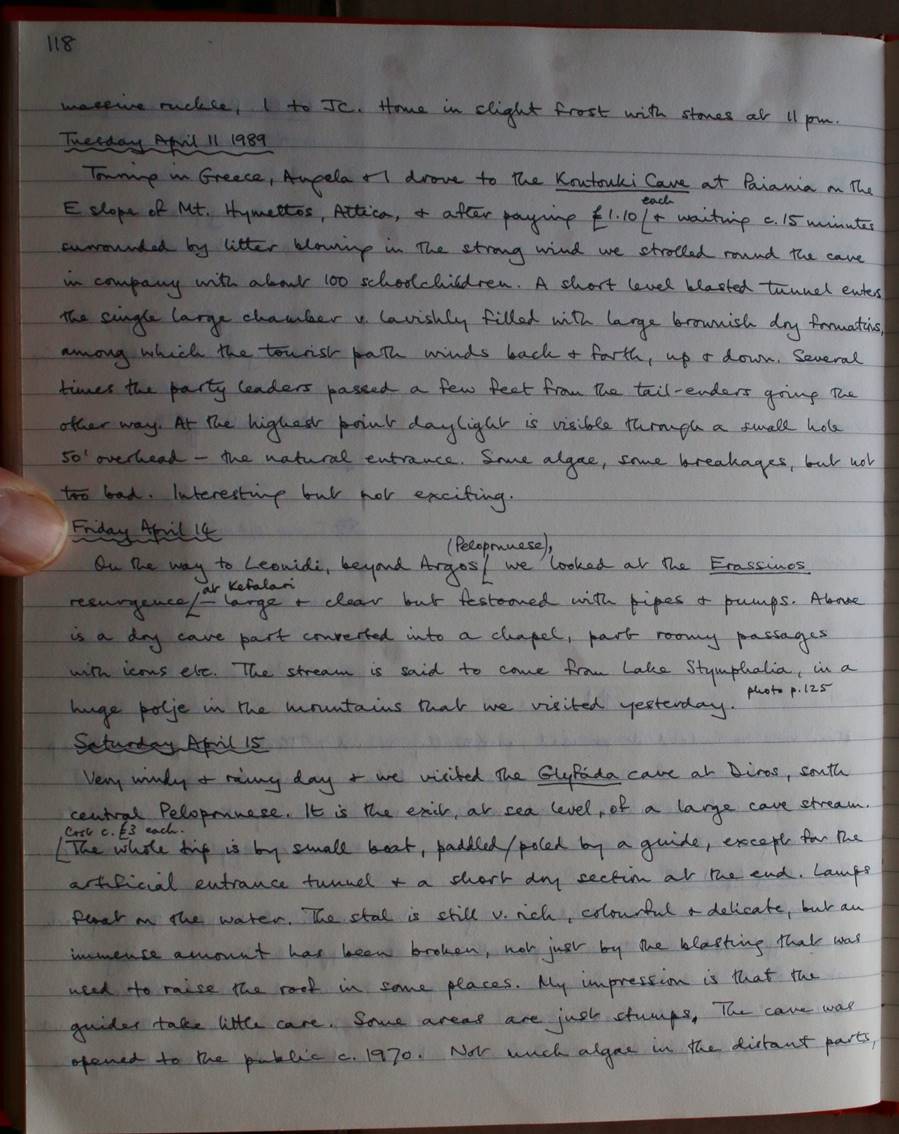 118
massive ruckle, 1 to JC. Home in slight frost with stones at 11 pm.
Tuesday April 11 1989
Touring in Greece, Angela + I drove to the Koutouki Cave at Paiania on the
E slope of Mt. Hymettos, Attica, + after paying £1.10 each + waiting c.15 minutes
surrounded by litter blowing in the strong wind we strolled round the cave
in company with about 100 schoolchildren. A short level blasted tunnel enters
the single large chamber v. lavishly filled with large brownish dry formations,
among which the tourist path winds back + forth, up + down. Several
times the party leaders passed a few feet from the tail-enders going the
other way. At the highest point daylight is visible through a small hole
50' overhead – the natural entrance. Some algae, some breakages, but not
too bad. Interesting but not exciting.
Friday April 14
On the way to Leonidi, beyond Argos (Peloponnese), we looked at the Erassinos
resurgence at Kefalari – large + clear but festooned with pipes + pumps. Above
is a dry cave part converted into a chapel, part roomy passages
with icons etc. The stream is said to come from Lake Stymphalia, in a
huge polje in the mountains that we visited yesterday. photo p.125
Saturday April 15
Very windy + rainy day + we visited the Glyfáda cave at Diros, south
central Peloponnese. It is the exit, at sea level, of a large cave stream.
Cost c. £3 each.
The whole trip is by small boat, paddled/poled by a guide, except for the
artificial entrance tunnel + a short dry section at the end. Lamps
float on the water. The stal is still v. rich, colourful + delicate, but an
immense amount has been broken, not just by the blasting that was
used to raise the roof in some places. My impression is that the
guides take little care. Some areas are just stumps. The cave was
opened to the public c. 1970. Not much algae in the distant parts,